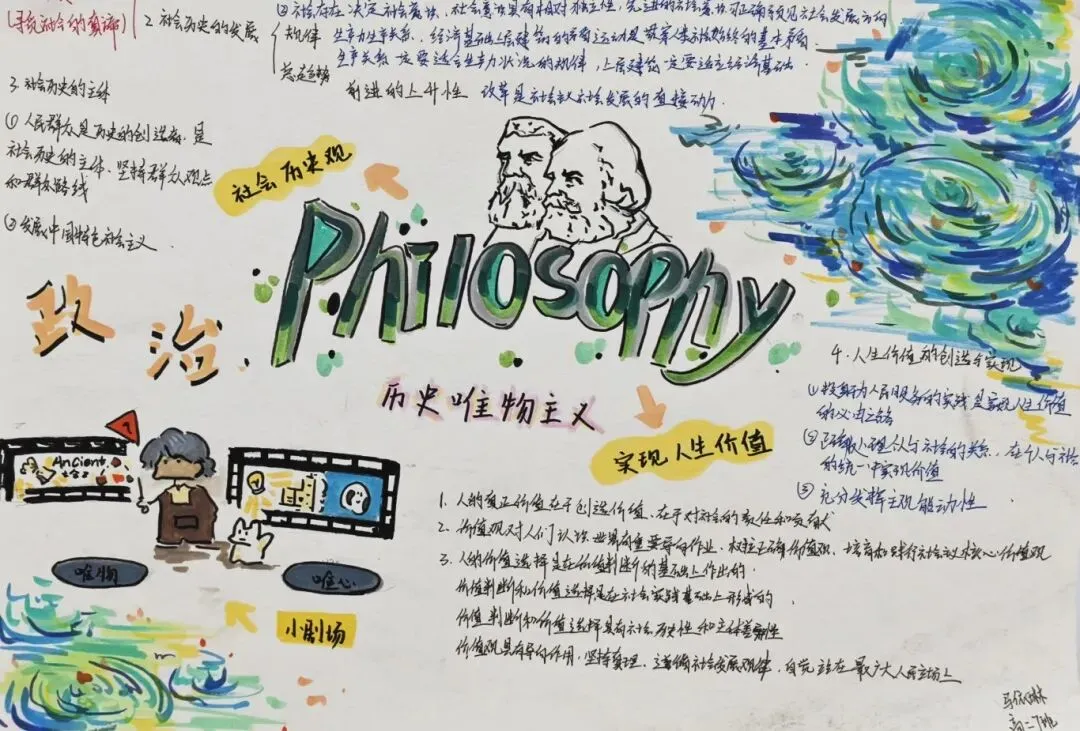 (寻觅社会的真谛)
2. 社会历史的发展
② 社会存在决定社会意识，社会意识具有相对独立性，先进的社会意识可正确预见社会发展方向
规律 生产力生产关系，经济基础上层建筑的矛盾运动是贯穿人类社会始终的基本矛盾
生产关系一定要适合生产力状况的规律，上层建筑一定要适应经济基础.
总趋势 前进的上升性 改革是社会主义社会发展的直接动力.
3. 社会历史的主体
① 人民群众是历史的创造者，是
社会历史的主体、坚持群众观点
和群众路线
② 发展中国特色社会主义.
社会历史观
Philosophy
政治.
历史唯物主义
实现人生价值
4. 人生价值的创造与实现
① 投身为人民服务的实践是实现人生价值
的必由之路
② 正确处理个人与社会的关系，在个人与社会
的统一中实现价值
③ 充分发挥主观能动性
1. 人的真正价值在于创造价值，在于对社会的责任和贡献
2. 价值观对人们认识世界有重要导向作用，树立正确价值观，培育和践行社会主义核心价值观
3. 人的价值选择是在价值判断的基础上作出的
价值判断和价值选择是在社会实践基础上形成的
价值判断和价值选择具有社会历史性和主体差异性
价值观具有导向作用，坚持真理，遵循社会发展规律，自觉站在最广大人民立场上
Ancient
唯物
唯心
小剧场
高二7班